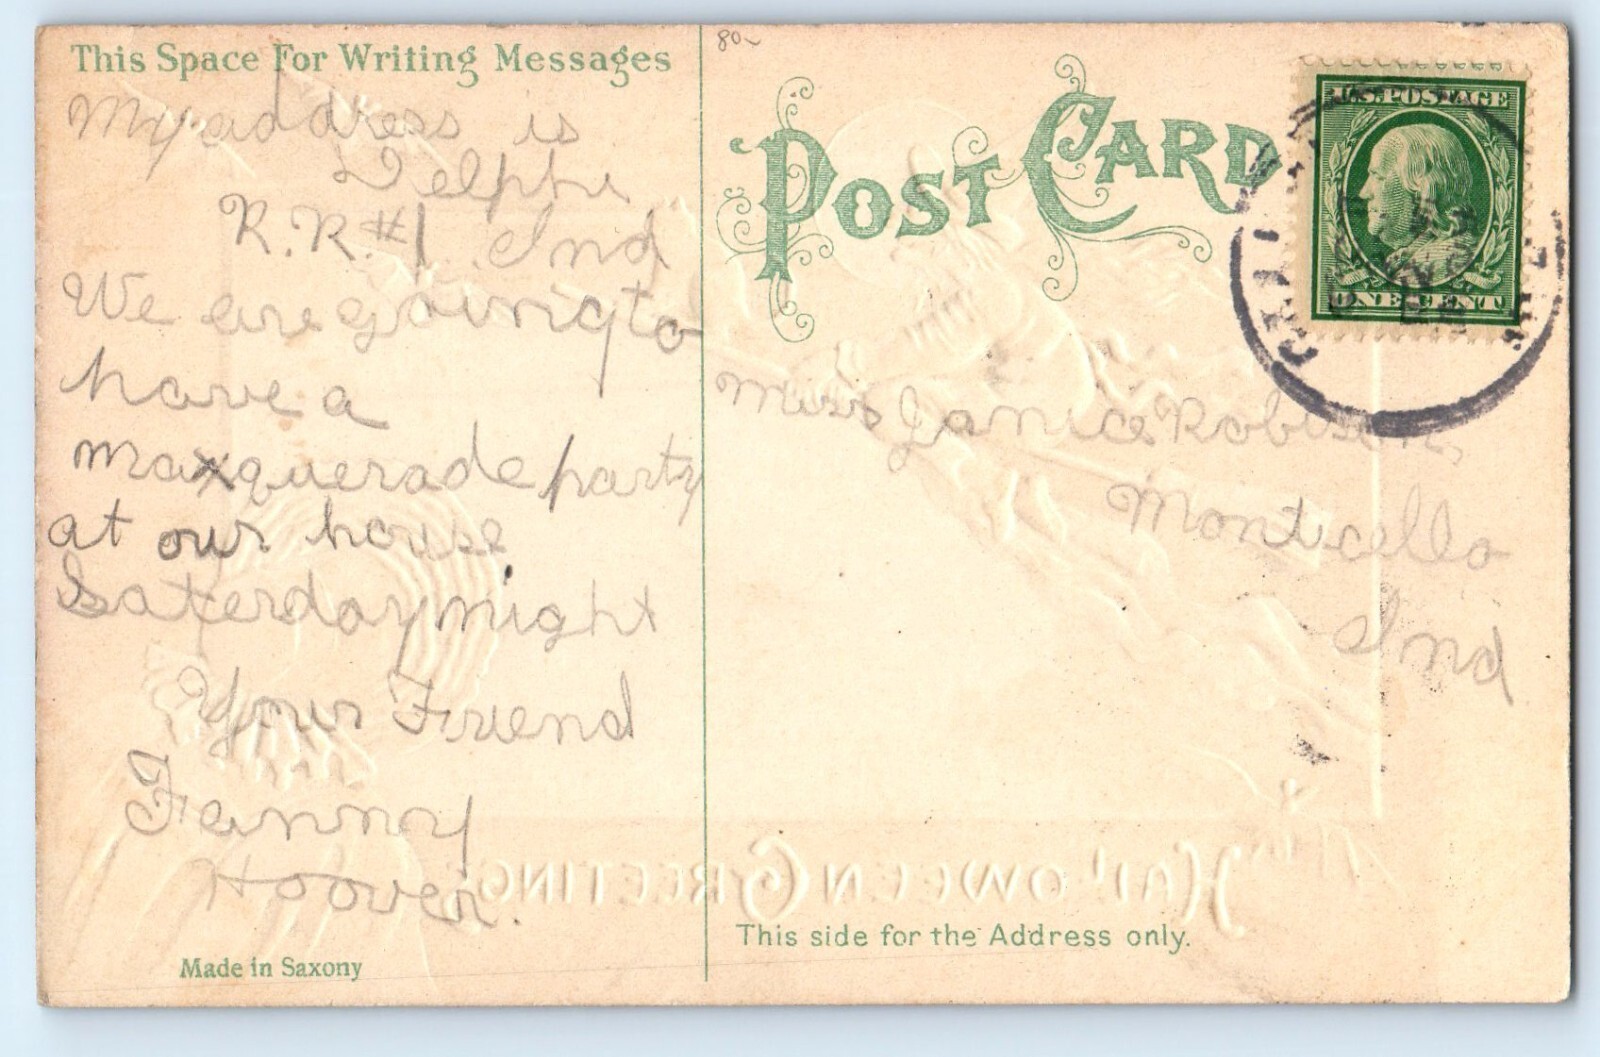 This Space For Writing Messages
My address is
Delphi
R.R #1 Ind
We are going to
have a
maxquerade party
at our house
Saterday night
Your Friend
Fanny
Hoover.
Made in Saxony
80
POST CARD
U.S. POSTAGE
ONE CENT
Miss Janice Robison,
Monticello
Ind
HALLOWEEN GREETING
This side for the Address only.